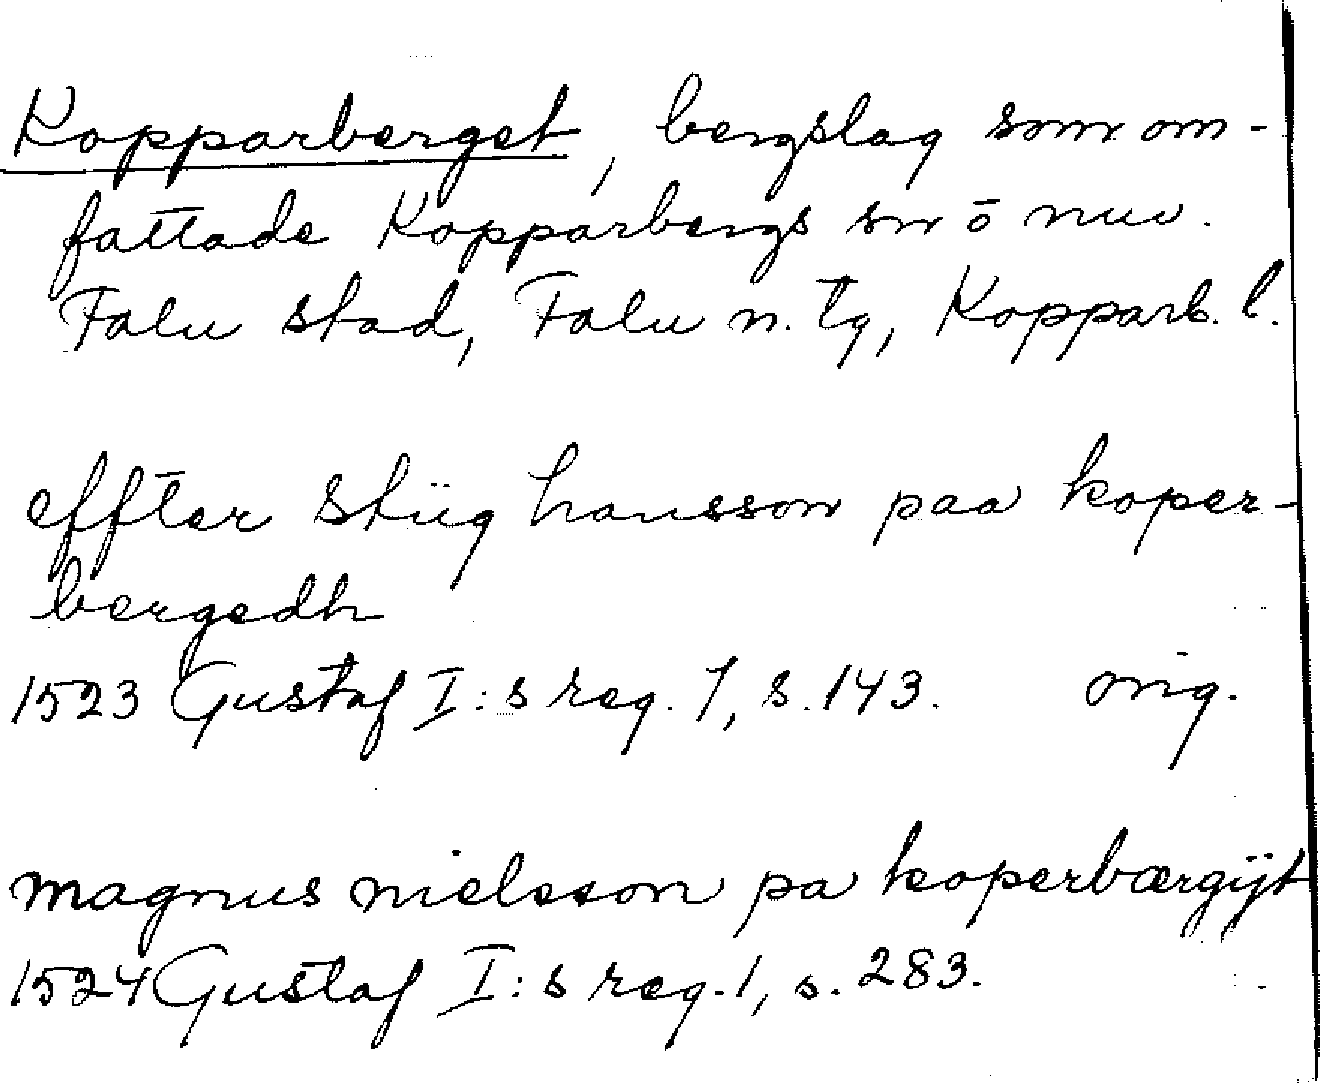 Kopparberget, bergslag som om-
fattade Kopparbergs sn ō nuv.
Falu stad, Falu n. tg, Kopparb. l.
effter Stiig hansson paa koper-
bergedh
1523 Gustaf I:s reg. 1, s. 143. orig.
magnus nielsson pa koperbærgÿt
1524 Gustaf I:s reg. 1, s. 283.